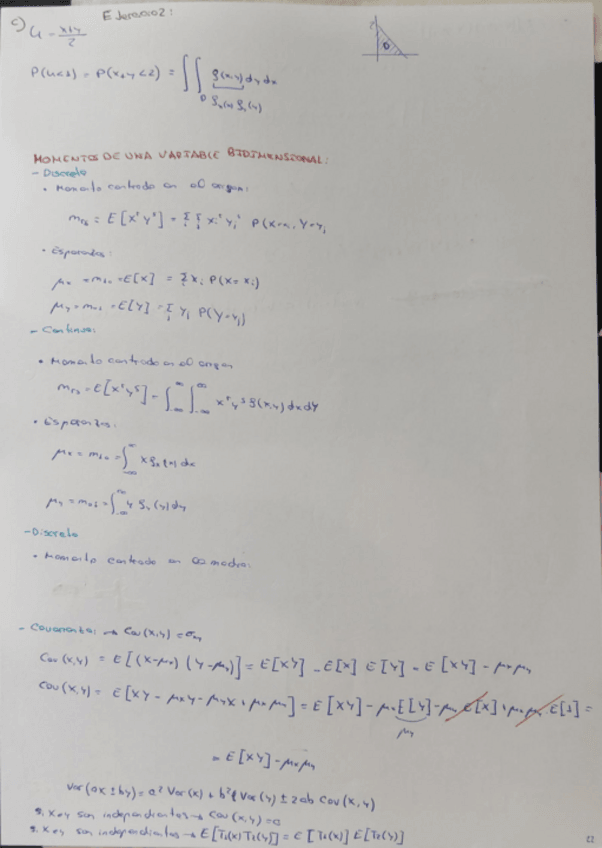 c) Ejercicio 2:
U = x+y/2
P(U<1) = P(x+y<2) = ∫∫_D f(x,y) dy dx
f_x(x) f_y(y)
MOMENTOS DE UNA VARIABLE BIDIMENSIONAL:
- Discreto
• Momento centrado en el origen:
m_rs = E[x^r y^s] = Σ_i Σ_j x_i^r y_j^s P(X=x_i, Y=y_j
• Esperanzas:
μ_x = m_10 = E[x] = Σ_i x_i P(X=x_i)
μ_y = m_01 = E[y] = Σ_j y_j P(Y=y_j)
- Continuo:
• Momento centrado en el origen
m_rs = E[x^r y^s] = ∫_-∞^∞ ∫_-∞^∞ x^r y^s f(x,y) dx dy
• Esperanzas:
μ_x = m_10 = ∫_-∞^∞ x f_x(x) dx
μ_y = m_01 = ∫_-∞^∞ y f_y(y) dy
- Discreto
• Momento centrado en la media:
- Covarianza: → Cov(x,y) = σ_xy
Cov(x,y) = E[(x-μ_x)(y-μ_y)] = E[xy] - E[x] E[y] = E[xy] - μ_x μ_y
Cov(x,y) = E[xy - μ_x y - μ_y x + μ_x μ_y] = E[xy] - μ_x E[y] - μ_y E[x] + μ_x μ_y E[1] =
μ_y
= E[xy] - μ_x μ_y
Var(ax ± by) = a² Var(x) + b² Var(y) ± 2ab Cov(x,y)
Si x e y son independientes → Cov(x,y) = 0
Si x e y son independientes → E[T_1(x) T_2(y)] = E[T_1(x)] E[T_2(y)]